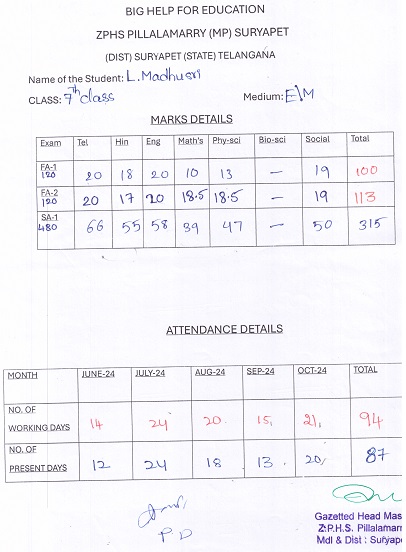 BIG HELP FOR EDUCATION
ZPHS PILLALAMARRY (MP) SURYAPET
(DIST) SURYAPET (STATE) TELANGANA
Name of the Student: L. Madhusri
CLASS: 7th class Medium: E\M
MARKS DETAILS
Exam Tel Hin Eng Math's Phy-sci Bio-sci Social Total
FA-1 120 20 18 20 10 13 — 19 100
FA-2 120 20 17 20 18.5 18.5 — 19 113
SA-1 480 66 55 58 39 47 — 50 315
ATTENDANCE DETAILS
MONTH JUNE-24 JULY-24 AUG-24 SEP-24 OCT-24 TOTAL
NO. OF WORKING DAYS 14 24 20 15 21 94
NO. OF PRESENT DAYS 12 24 18 13 20 87
P D
Gazetted Head Mas
Z.P.H.S. Pillalamarr
Mdl & Dist : Suryape